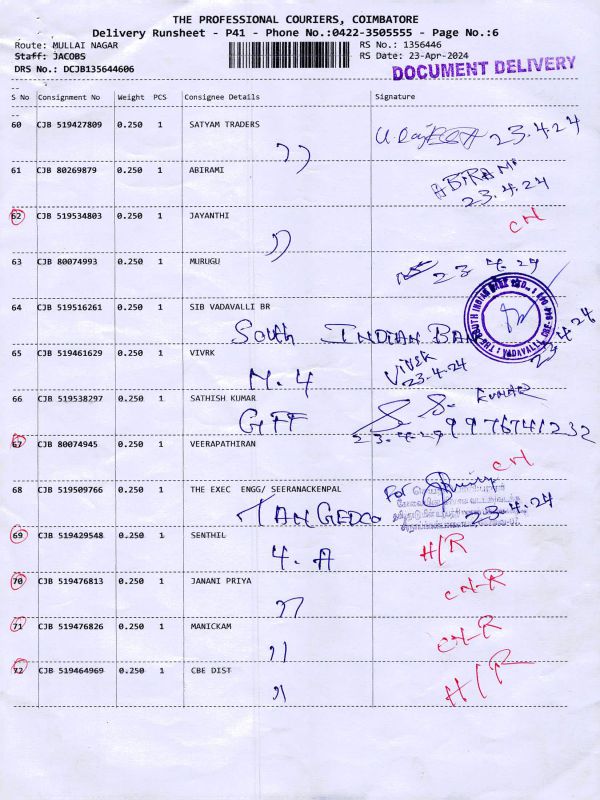 THE PROFESSIONAL COURIERS, COIMBATORE
Delivery Runsheet - P41 - Phone No.:0422-3505555 - Page No.:6
Route: MULLAI NAGAR RS No.: 1356446
Staff: JACOBS RS Date: 23-Apr-2024
DRS No.: DCJB135644606 DOCUMENT DELIVERY
S No Consignment No Weight PCS Consignee Details Signature
60 CJB 519427809 0.250 1 SATYAM TRADERS 23.4.24
61 CJB 80269879 0.250 1 ABIRAMI ABiRAMi
23.4.24
62 CJB 519534803 0.250 1 JAYANTHI CN
63 CJB 80074993 0.250 1 MURUGU 23 4.24
64 CJB 519516261 0.250 1 SIB VADAVALLI BR
South INDIAN BANK 23.4.24
65 CJB 519461629 0.250 1 VIVRK Vivek
M.4 23.4.24
66 CJB 519538297 0.250 1 SATHISH KUMAR S. KUMAR
GFF 23.4.24 9976741232
67 CJB 80074945 0.250 1 VEERAPATHIRAN CN
68 CJB 519509766 0.250 1 THE EXEC ENGG/ SEERANACKENPAL For
TANGEDCO 23.4.24
69 CJB 519429548 0.250 1 SENTHIL
4.A H/R
70 CJB 519476813 0.250 1 JANANI PRIYA CN-R
71 CJB 519476826 0.250 1 MANICKAM CN-R
72 CJB 519464969 0.250 1 CBE DIST H/R